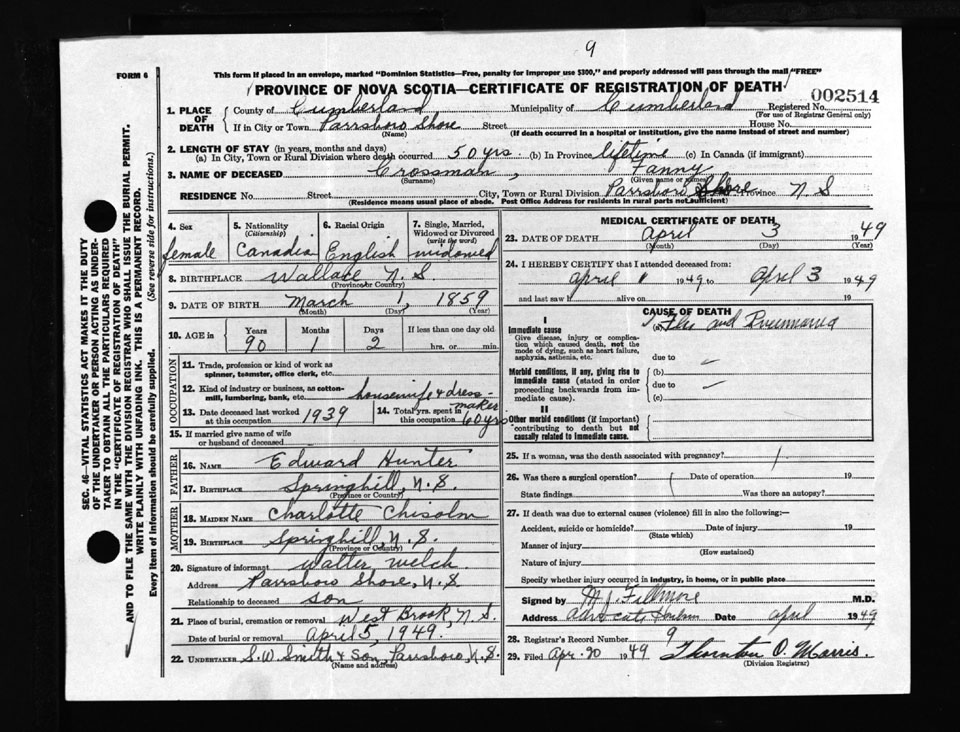 9
FORM 6
This form if placed in an envelope, marked "Dominion Statistics—Free, penalty for improper use $300," and properly addressed will pass through the mail "FREE"
PROVINCE OF NOVA SCOTIA—CERTIFICATE OF REGISTRATION OF DEATH
002514
1. PLACE OF DEATH County of Cumberland Municipality of Cumberland Registered No.
(For use of Registrar General only)
If in City or Town Parrsboro Shore Street House No.
(Name) (If death occurred in a hospital or institution, give the name instead of street and number)
2. LENGTH OF STAY (in years, months and days)
(a) In City, Town or Rural Division where death occurred 50 yrs. (b) In Province lifetime (c) In Canada (if immigrant)
3. NAME OF DECEASED Crossman, Fanny
(Surname) (Given name or names)
RESIDENCE No. Street City, Town or Rural Division Parrsboro Shore Province N S
(Residence means usual place of abode. Post Office Address for residents in rural parts not sufficient)
4. Sex female
5. Nationality (Citizenship) Canadian
6. Racial Origin English
7. Single, Married, Widowed or Divorced (write the word) widowed
8. BIRTHPLACE Wallace N. S.
(Province or Country)
9. DATE OF BIRTH March 1, 1859
(Month) (Day) (Year)
10. AGE in Years 90 Months 1 Days 2 If less than one day old hrs. or min.
OCCUPATION
11. Trade, profession or kind of work as spinner, teamster, office clerk, etc.
12. Kind of industry or business, as cotton-mill, lumbering, bank, etc. housewife & dress-maker
13. Date deceased last worked at this occupation 1939
14. Total yrs. spent in this occupation 60 yrs
15. If married give name of wife or husband of deceased
FATHER
16. NAME Edward Hunter
17. BIRTHPLACE Springhill, N. S.
(Province or Country)
MOTHER
18. MAIDEN NAME Charlotte Chisolm
19. BIRTHPLACE Springhill, N. S.
(Province or Country)
20. Signature of informant Walter Welch
Address Parrsboro Shore, N. S.
Relationship to deceased son
21. Place of burial, cremation or removal West Brook, N. S.
Date of burial or removal April 5, 1949.
22. UNDERTAKER S. W. Smith & Son, Parrsboro, N. S.
(Name and address)
MEDICAL CERTIFICATE OF DEATH
23. DATE OF DEATH April 3 1949
(Month) (Day) (Year)
24. I HEREBY CERTIFY that I attended deceased from:
April 1 1949 to April 3 1949
and last saw h alive on 19
CAUSE OF DEATH
I
Immediate cause (a) Flu and Pneumonia
Give disease, injury or complication which caused death, not the mode of dying, such as heart failure, asphyxia, asthenia, etc.
due to
Morbid conditions, if any, giving rise to immediate cause (stated in order proceeding backwards from immediate cause).
(b)
due to
(c)
II
Other morbid conditions (if important) contributing to death but not causally related to immediate cause.
25. If a woman, was the death associated with pregnancy?
26. Was there a surgical operation? Date of operation 19
State findings Was there an autopsy?
27. If death was due to external causes (violence) fill in also the following:—
Accident, suicide or homicide? Date of injury 19
(State which)
Manner of injury
(How sustained)
Nature of injury
Specify whether injury occurred in industry, in home, or in public place
Signed by M. J. Fillmore M.D.
Address Advocate Harbour Date April 1949
28. Registrar's Record Number 9
29. Filed Apr. 20 1949 Thornton O. Morris.
(Division Registrar)
SEC. 46—VITAL STATISTICS ACT MAKES IT THE DUTY
OF THE UNDERTAKER OR PERSON ACTING AS UNDERTAKER
TO OBTAIN ALL THE PARTICULARS REQUIRED
IN THE "CERTIFICATE OF REGISTRATION OF DEATH"
AND TO FILE THE SAME WITH THE DIVISION REGISTRAR WHO SHALL ISSUE THE BURIAL PERMIT.
WRITE PLAINLY WITH UNFADING INK. THIS IS A PERMANENT RECORD.
Every item of information should be carefully supplied. (See reverse side for instructions.)